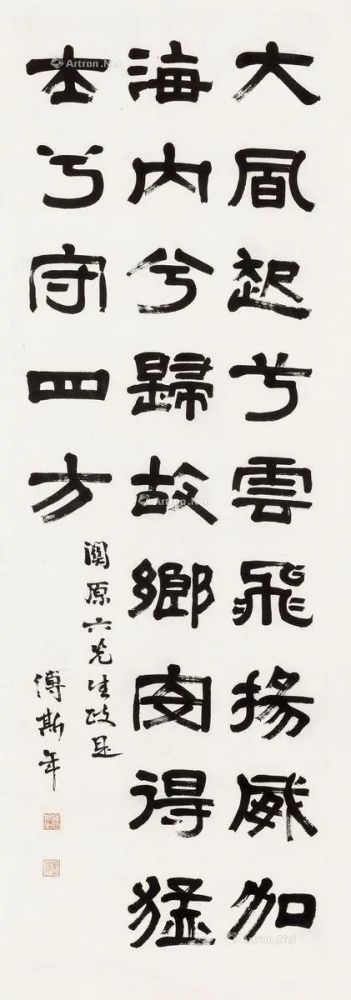 大風起兮雲飛揚威加
海内兮歸故鄉安得猛
士兮守四方
原六先生政是
傅斯年
Artron.Net